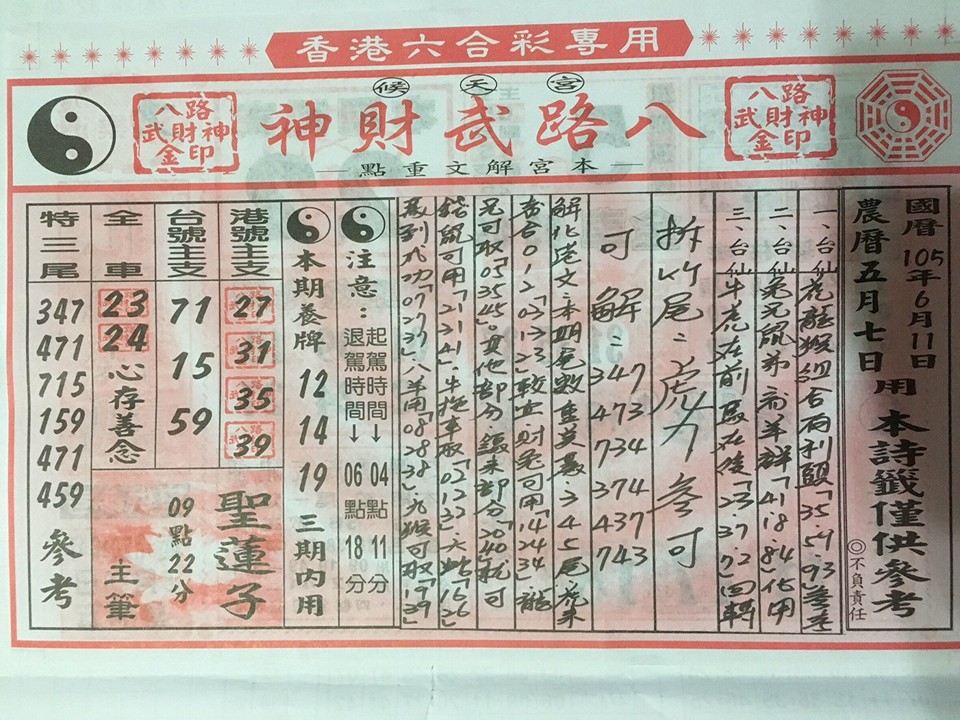 香港六合彩專用
候天宮
八路武財神
八路
武財神
金印
八路
武財神
金印
本宮解文重點
國曆105年6月11日
農曆五月七日
用本詩籤僅供參考
◎不負責任
一、台仙 龍猴組合兩利頭「35.59.93」參考
二、台仙 兔兄鼠弟 羊群「41.18.84」化用
三、台仙 牛虎在前 在後「23.37.72」回轉
拆竹尾:虎力參可
可解:347
473
734
374
437
743
解化港文:本期尾數重 3 4 5 尾.
合012「03.13.23」較 .財兔可用「14.24.34」龍
兄可取「05.35.45」.其他部分. 部分「20.40」就可
鼠可用「21.31.41」.牛拖車取「02.12.32」.六 「16.26」
「07.27.37」.八羊用「08.28.38」.九猴可取「19.29
注意:
起駕時間↓04點11分
退駕時間↓06點18分
本期養牌 12 14 19 三期內用
港號主支
27
31
35
39
台號主支
71
15
59
全車
23
24
心存善念
特三尾
347
471
715
159
471
459
參考
聖蓮子
09點22分
主筆